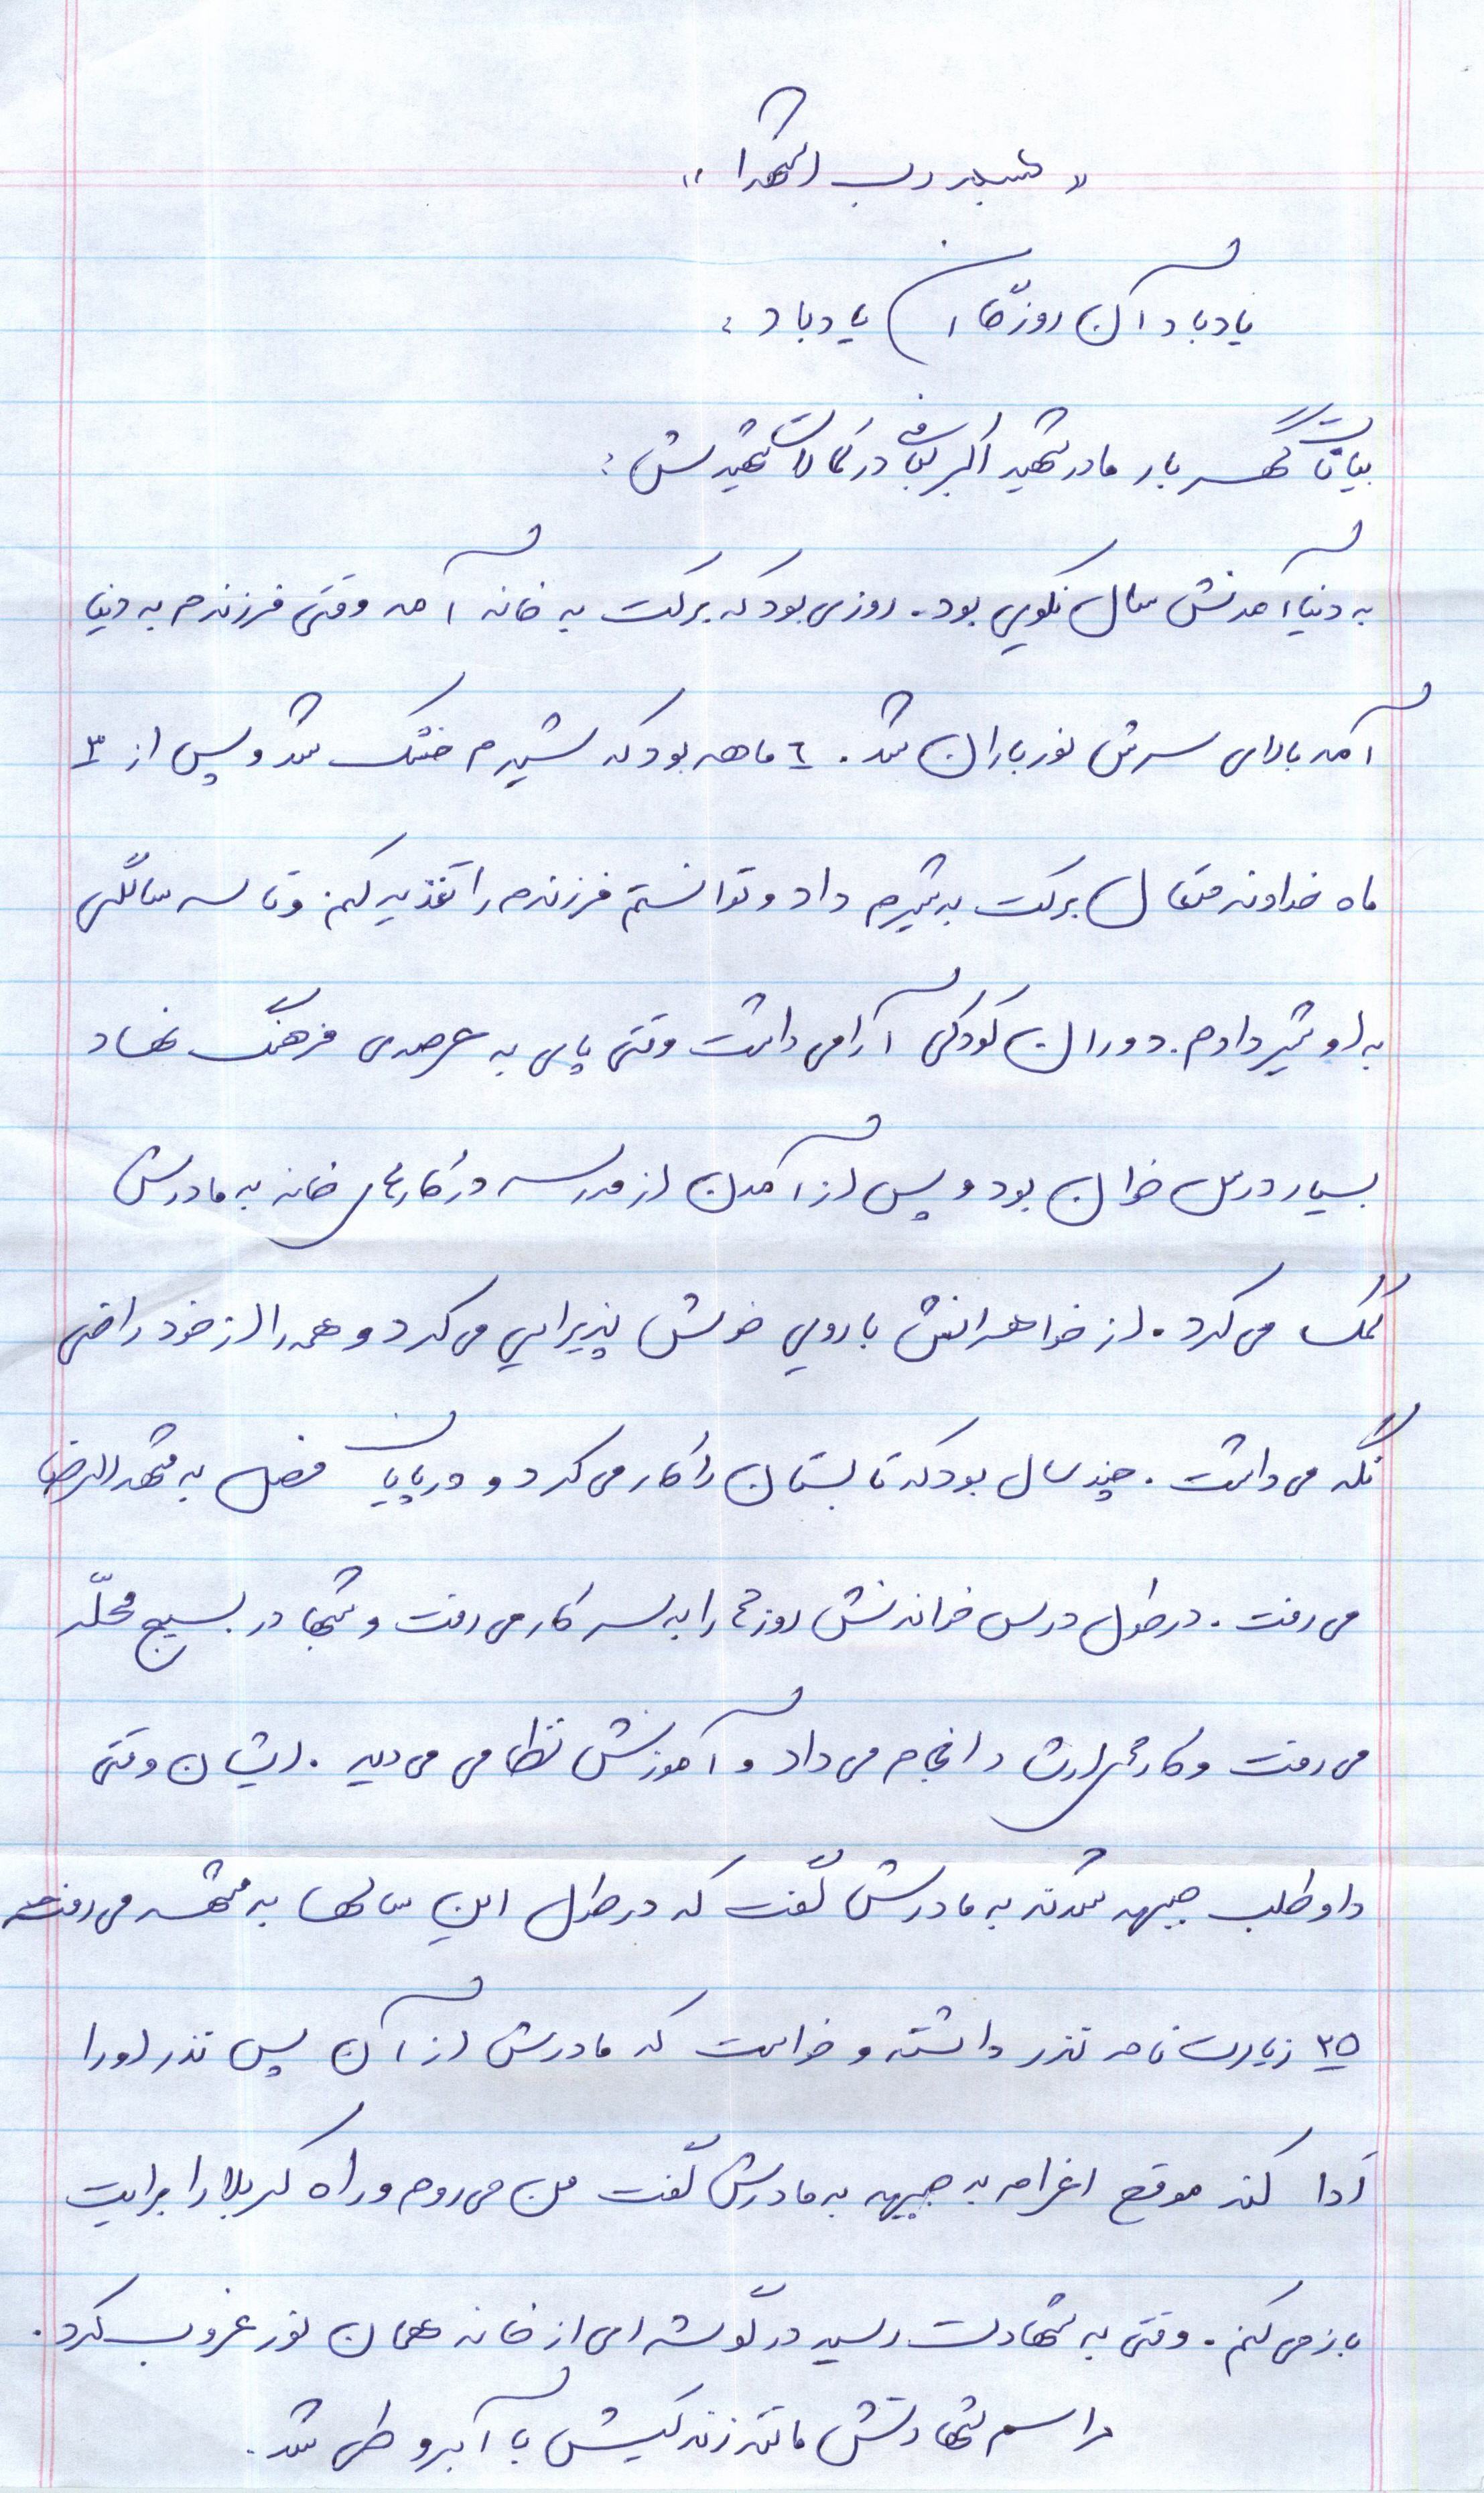 « بسمه رب الشهدا »
یادباد آن روزگاران یادباد :
بیانات گهر بار مادر شهید اکبر در کمالات شهیدش :
به دنیا آمدنش سال نکویی بود. روزی بود که برکت به خانه آمد وقتی فرزندم به دنیا
آمد بالای سرش نور باران شد. ٦ ماهه بود که شیرم خشک شد و پس از ۳
ماه خداوند متعال برکت به شیرم داد و توانستم فرزندم را تغذیه کنم و تا سه سالگی
به او شیر دادم. دوران کودکی آرامی داشت وقتی پای به عرصه‌ی فرهنگ نهاد
بسیار درس خوان بود و پس از آمدن از مدرسه در کارهای خانه به مادرش
کمک می کرد. از خواهرانش با رویی خوش پذیرایی می کرد و همه را از خود راضی
نگه می داشت. چند سال بود که تابستان را کار می کرد و در پایان فصل به مشهد الرضا
می رفت. در طول درس خواندنش روزها را به سر کار می رفت و شبها در بسیج محلّه
می رفت و کارهای را انجام می داد و آموزش نظامی می دید. ایشان وقتی
داوطلب جبهه شدند به مادرش گفت که در طول این سالها به مشهد می رفت
۳۵ زیارت نامه نذر داشته و خواست که مادرش از آن پس نذر او را
اَدا کند موقع اعزام به جبهه به مادرش گفت من می روم و راه کربلا را برایت
باز می کنم. وقتی به شهادت رسید در گوشه ای از خانه همان نور غروب کرد.
مراسم شهادتش مانند زندگیش با آبرو طی شد.